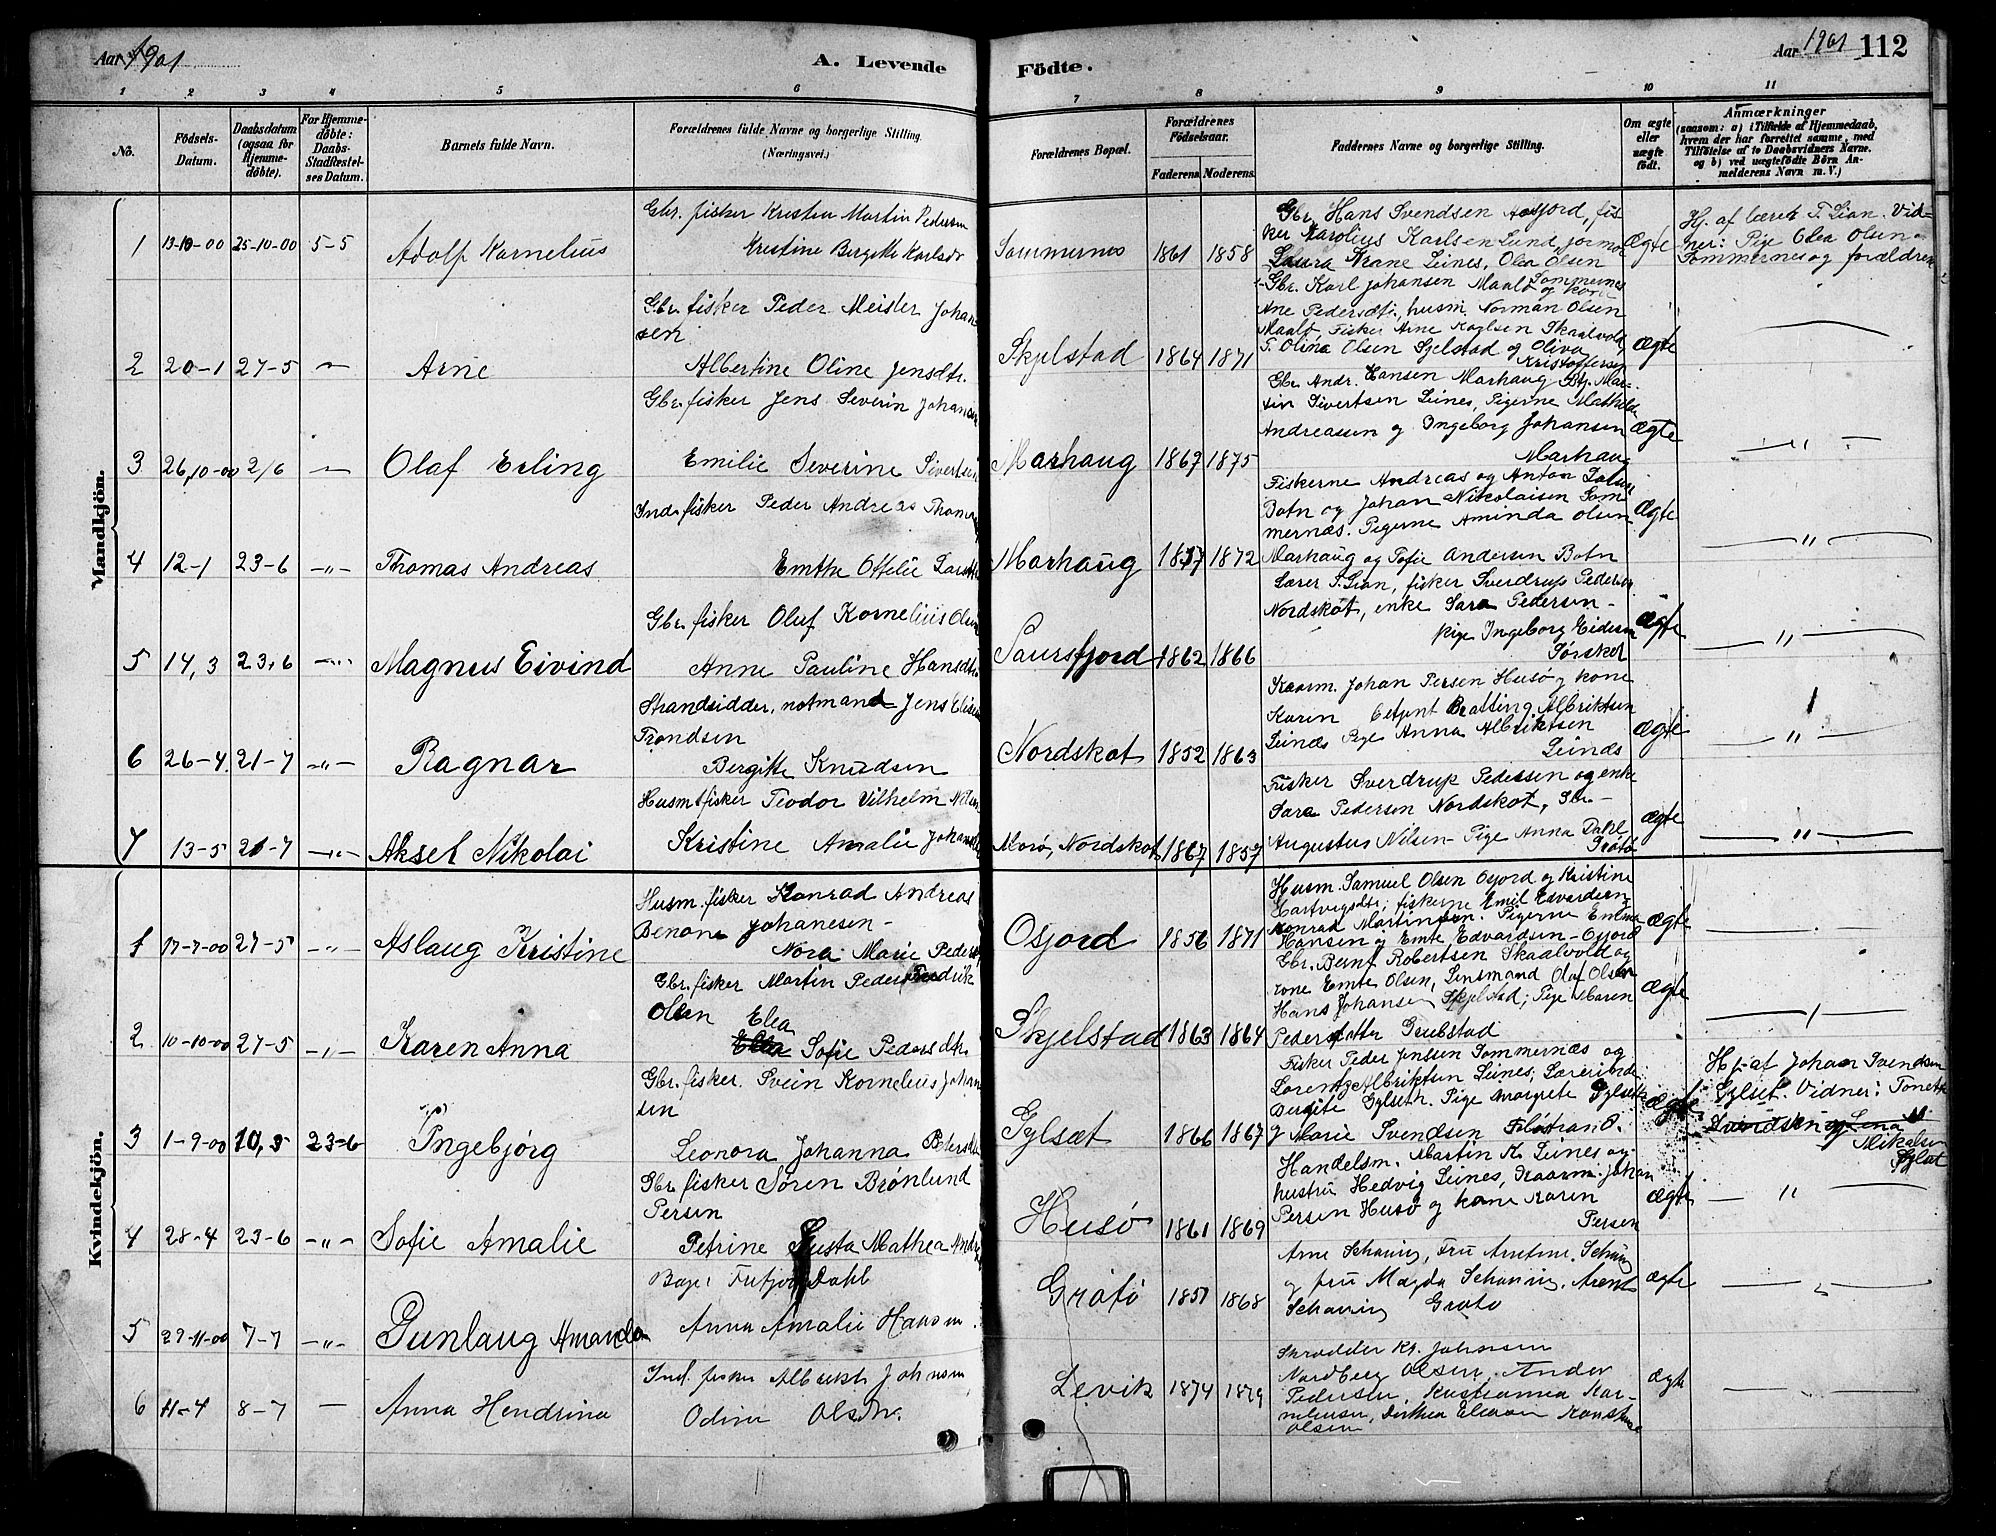 Aar 1901
A. Levende
Födte.
Aar 1901
112
1 2 3 4 5 6 7 8 9 10 11
No.
Födsels-Datum.
Daabsdatum (ogsaa for Hjemme-döbte).
For Hjemme-döbte: Daabs-Stadfæstel-ses Datum.
Barnets fulde Navn.
Forældrenes fulde Navne og borgerlige Stilling.
(Næringsvei.)
Forældrenes Bopæl.
Forældrenes Födselsaar.
Faderens. Moderens.
Faddernes Navne og borgerlige Stilling.
Om ægte eller uægte födt.
Anmærkninger
(saasom: a) i Tilfælde af Hjemmedaab,
hvem der har forrettet samme, med
Tilföielse af to Daabsvidners Navne.
og b) ved uægtefödte Börn An-
melderens Navn m. V.)
Mandkjön.
1 13-10-00 25-10-00 5-5 Adolf Kornelius
Gbr. fisker Kristen Martin Pedersen
Kristine Bergitte Karlsdr
Sommernes 1861 1858
Gbr Hans Svendsen Aasfjord, fis-
ker Karolius Karlsen Lund, jormor
Laura Krane Leines, Olea Olsen
Sommernes
Ægte
Hj. af lærer T. Lian. Vid-
ner: Pige Olea Olsen
Sommernes og forældren
2 20-1 27-5 Arne
Gbr fisker Peder Meisler Johan-
sen
Albertine Oline Jensdtr.
Skjelstad 1864 1871
Gbr. Karl Johansen Maalø og kone
Ane Pedersdtr, husm Norman Olsen
Maalø. Fisker Arne Karlsen Skaalvold
P. Olina Olsen Sjelstad og Oliva
Kristoffersen
Ægte
3 26,10-00 2/6 Olaf Erling
Gbr. fisker Jens Severin Johansen
Emilie Severine Sivertsen
Marhaug 1867 1875
Gbr Andr. Hansen Marhaug Gbr. Mar-
tin Sivertsen Leines, Pigerne Mathilde
Andreassen og Ingeborg Johansen
Marhaug
Ægte
4 12-1 23-6 -"- Thomas Andreas
Ind. fisker Peder Andreas Thom
Emthe Ottilie Larsdtr
Marhaug 1872
Fiskerne Andreas og Anton
Botn og Johan Nikolaisen Som
mernæs. Pigerne Aminda Olsen
Marhaug og Sofie Andersen Botn
Ægte
5 14,3 23,6 -"- Magnus Eivind
Gbr. fisker Oluf Kornelius Olsen
Anne Pauline Hansdtr
Saursfjord 1862 1866
Lærer T. Lian, fisker Sverdrup Pedersen
Nordskot, enke Sara Pedersen -
pige Ingeborg Eidesen
Sørskot
Ægte
6 26-4 21-7 -"- Ragnar
Strandsidder, notmand Jens Elisen
Trondsen
Bergitte Knudsen
Nordskot 1852 1863
Kaarm. Johan Persen Husø og kone
Karen Betjent Bratting Albriktsen
Leinæs Pige Anna Albriktsen
Leinæs
Ægte
7 13-5 21-7 -"- Aksel Nikolai
Husm fisker Teodor Vilhelm Nilsen
Kristine Amalie Johans
Morø, Nordskot 1867 1857
Fisker Sverdrup Pedersen og enke
Sara Pedersen Nordskot, Gbr -
Augustus Nilsen - Pige Anna Dahl
Grøtø
Ægte
Kvindekjön.
1 17-7-00 27-5 -"- Aslaug Kristine
Husm. fisker Konrad Andreas
Benone Johanesen -
Nora Marie Peders
Osjord 1856 1871
Husm. Samuel Olsen Osjord og Kristine
Hartvigsdtr; fiskerne Emil Edvardsen
Konrad Martinsen. Pigerne
Hansen og Emte Edvardsen - Osjord
Ægte
2 10-10-00 27-5 -"- Karen Anna
Gbr. fisker Martin Peder Fredrik
Olsen
Elea Sofie Pedersdtr.
Skjelstad 1863 1864
Gbr. Bernt Robertsen Skaalvold og
kone Emte Olsen, Lensmand Olaf Olsen
Hans Johansen Skjelstad; Pige Maren
Pedersdatter Grubstad
Ægte
3 1-9-00 10,5 23-6 Ingebjørg
Gbr. fisker. Svein Kornelius Johan
sen
Leonora Johanna Petersdtr
Gylsæt 1866 1867
Fisker Peder Jensen Sommernæs og
Lorentz Albriktsen Leines; Lærerinde
Bergite Gylseth. Pige Margrete Gylset
og Marie Svendsen
Ægte
Hj. af Johan Svendsen
Gylset. Vidner: Tonette
Svendsen og Lena
Mikalsen
Gylset
4 28-4 23-6 -"- Sofie Amalie
Gbr fisker Søren Brønlund
Persen
Petrine Gusta Mathea Andr
Husø 1861 1869
Handelsm. Martin K. Leines og
hustru Hedvig Leines, Kaarm. Johan
Persen Husø og kone Karen
Persen
Ægte
5 27-11-00 7-7 -"- Gunlaug Amanda
Dahl
Anna Amalie Hansen
Grøtø 1851 1868
Arne Schøning, Fru Schøning
og fru Magda Schøning, Arent
Schøning Grøtø
Ægte
6 11-4 8-7 Anna Hendrina
Ind. fisker Albrekt Johnsen
Odine Olsdtr.
Levik 1874 1879
Skrædder Kr. Johnsen
Nordberg Olsen, Ander
Pedersen, Kristianna Kor-
neliusen, Dorthea
Olsen
Ægte